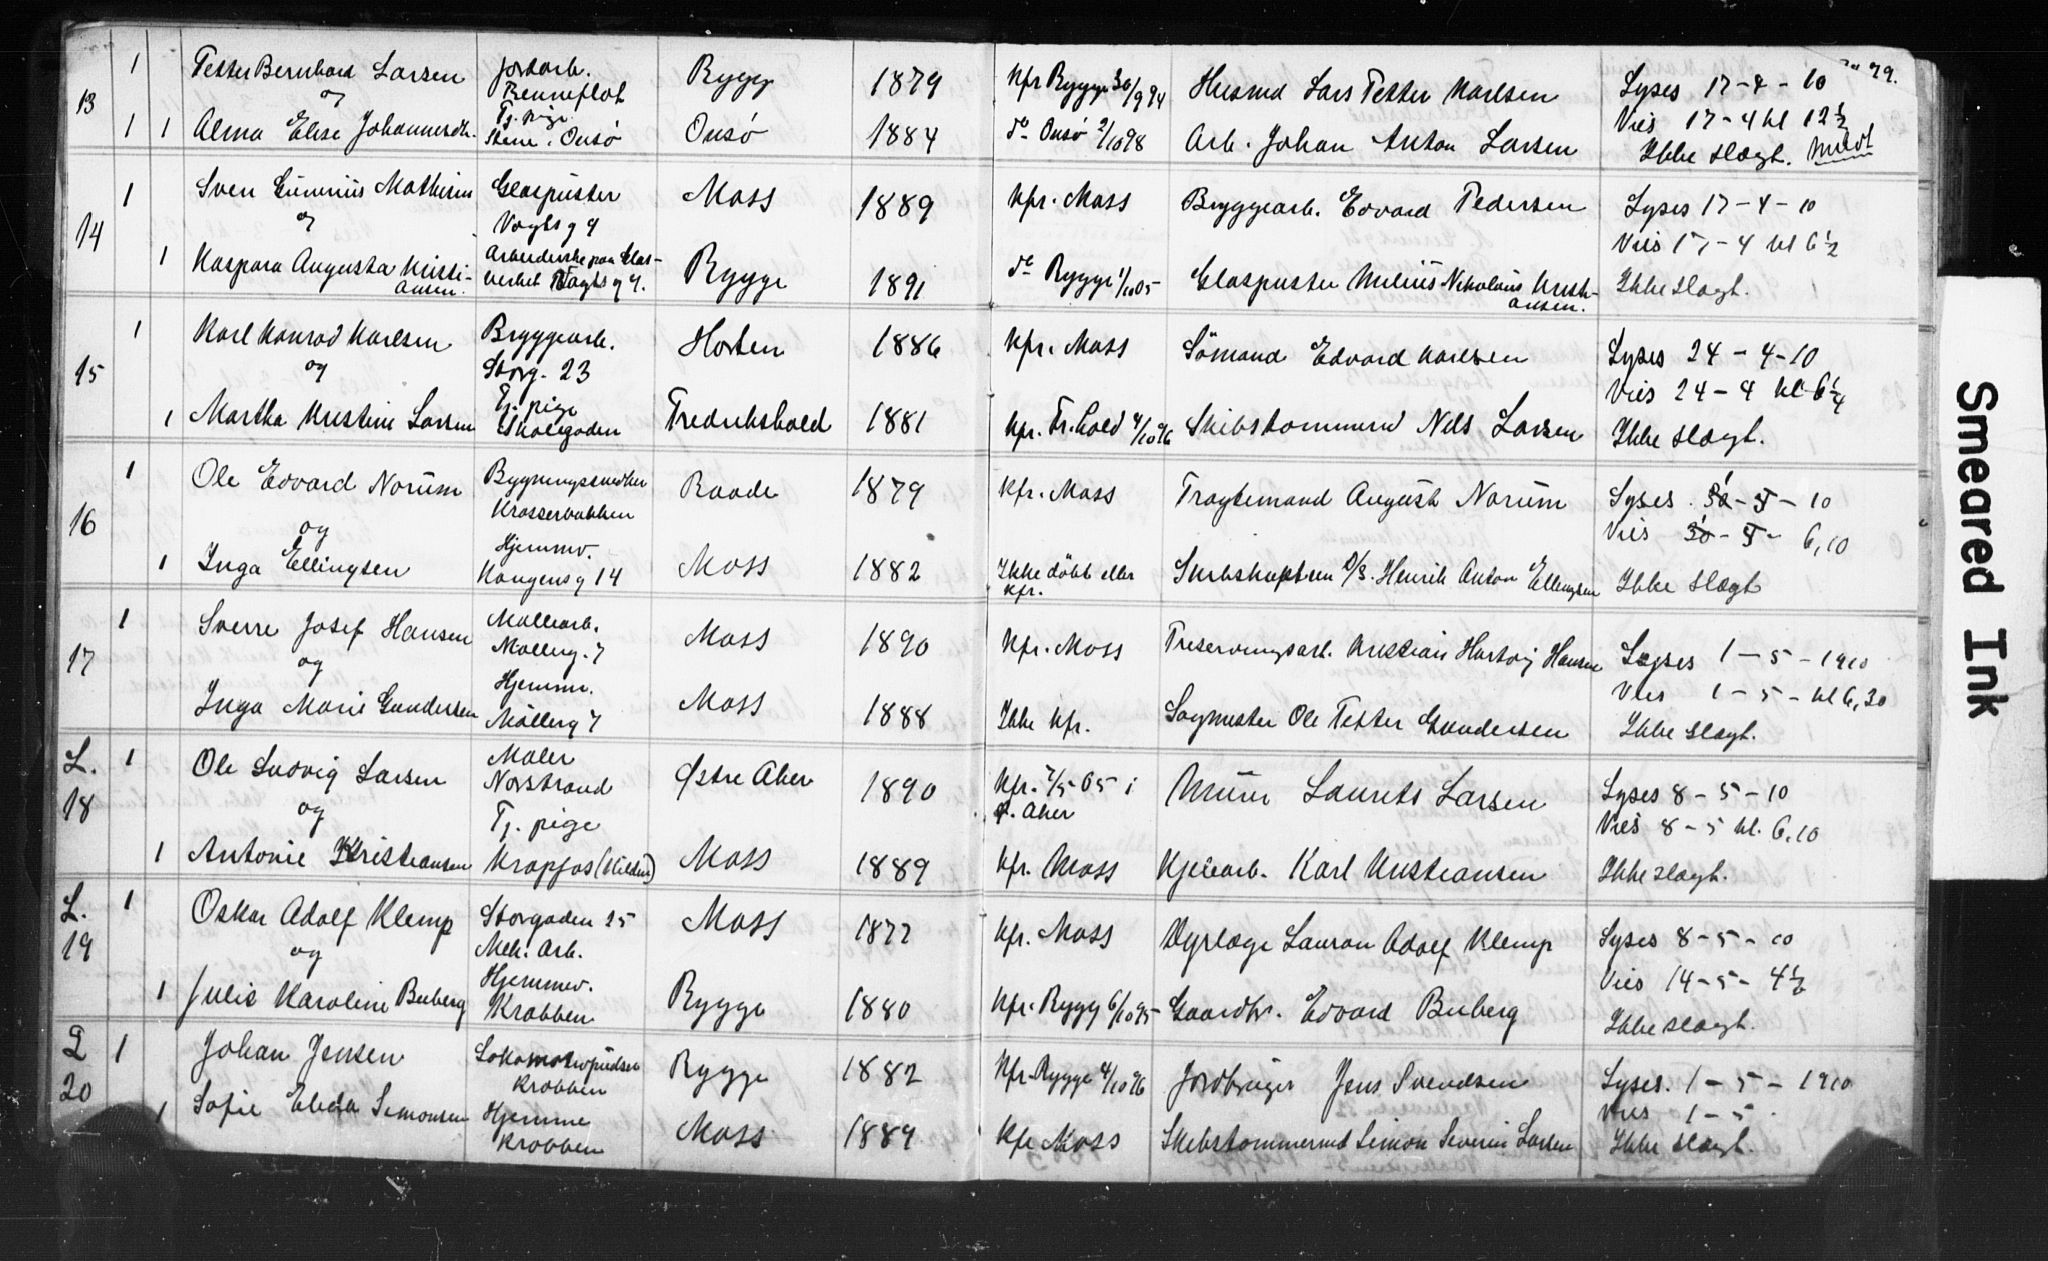 79.
13 1 Petter Bernhard Larsen Jordarb. Rygge 1879 Kfr Rygge 30/9 94 Husmd Lars Petter Karlsen Lyses 17-4-10
og Benneflot Vies 17-4 kl 12½
1 1 Alma Elise Johannesdtr. Tj. pige. Stene i Onsö Onsö 1884 do Onsö 2/10 98 Arb. Johan Anton Larsen Ikke slægt. Meldt
14 1 Sven Gunnius Mathisen Glaspuster Moss 1889 Kfr. Moss Bryggearb. Edvard Pedersen Lyses 17-4-10
og Vogtsg 4 Vies 17-4 kl 6½
1 Kaspara Augusta Kristiansen. Arbeiderske paa Glasverket Vogtsg 4. Rygge 1891 do Rygge 1/10 05 Glaspuster Milius Nikolaus Kristiansen. Ikke slægt.
15 1 Karl Konrad Karlsen Bryggearb. Horten 1886 Kfr. Moss Sömand Edvard Karlsen Lyses 24-4-10
og Storg. 23 Vies 24-4 kl 6¼
1 Martha Kristine Larsen Tj. pige Skolegaden Fredrikshald 1881 Kfr. Fr.hald 4/10 96 Skibstømmermd Nils Larsen Ikke slægt.
16 1 Ole Edvard Norum Bygningssnedker Raade 1879 Kfr. Moss Fragtemand August Norum Lyses. 5-10
og Krosserbakken Vies 6,10
1 Inga Ellingsen Hjemmv. Kongensg 14 Moss 1882 Ikke döbt eller kfr. Skibskaptein D/S. Henrik Anton Ellingsen Ikke slægt
17 1 Sverre Josef Hansen Møllearb. Moss 1890 Kfr. Moss Preserveringsarb. Kristian Hartvig Hansen Lyses 1-5-1910
og Mølleg. 7 Vies 1-5-kl 6,30
Inga Marie Gundersen Hjemmv. Mölleg 7 Moss 1888 Ikke kfr. Sagmester Ole Petter Gundersen Ikke slægt.
L. 18 1 Ole Ludvig Larsen Maler Østre Aker 1890 Kfr. 7/5 05 i Ø. Aker Murer Laurits Larsen Lyses 8-5-10
og Norstrand Vies 8-5 kl. 6,10
1 Antonie Kristiansen Tj. pige Krapfos (Kilden) Moss 1889 Kfr. Moss Kjelearb. Karl Kristiansen Ikke slægt.
L. 19 1 Oskar Adolf Klemp Storgaden 25 Moss 1877 Kfr. Moss Dyrlæge Lauran Adolf Klemp Lyses 8-5-10
og Mek. Arb. Vies 14-5-4½
1 Julie Karoline Buberg Hjemmv. Krabben Rygge 1880 Kfr. Rygg 6/10 95 Gaardbr. Edvard Buberg Ikke slægt.
L 20 1 Johan Jensen Lokomotivpudser Krabben Rygge 1882 Kfr. Rygge 4/10 96 Jordbruger Jens Svendsen Lyses. 1-5-1910
Vies 1-5
1 Sofie Elida Simonsen Hjemme Krabben Moss 1889 Kfr Moss Skibstømmermd Simon Severin Larsen Ikke slægt.
Smeared Ink